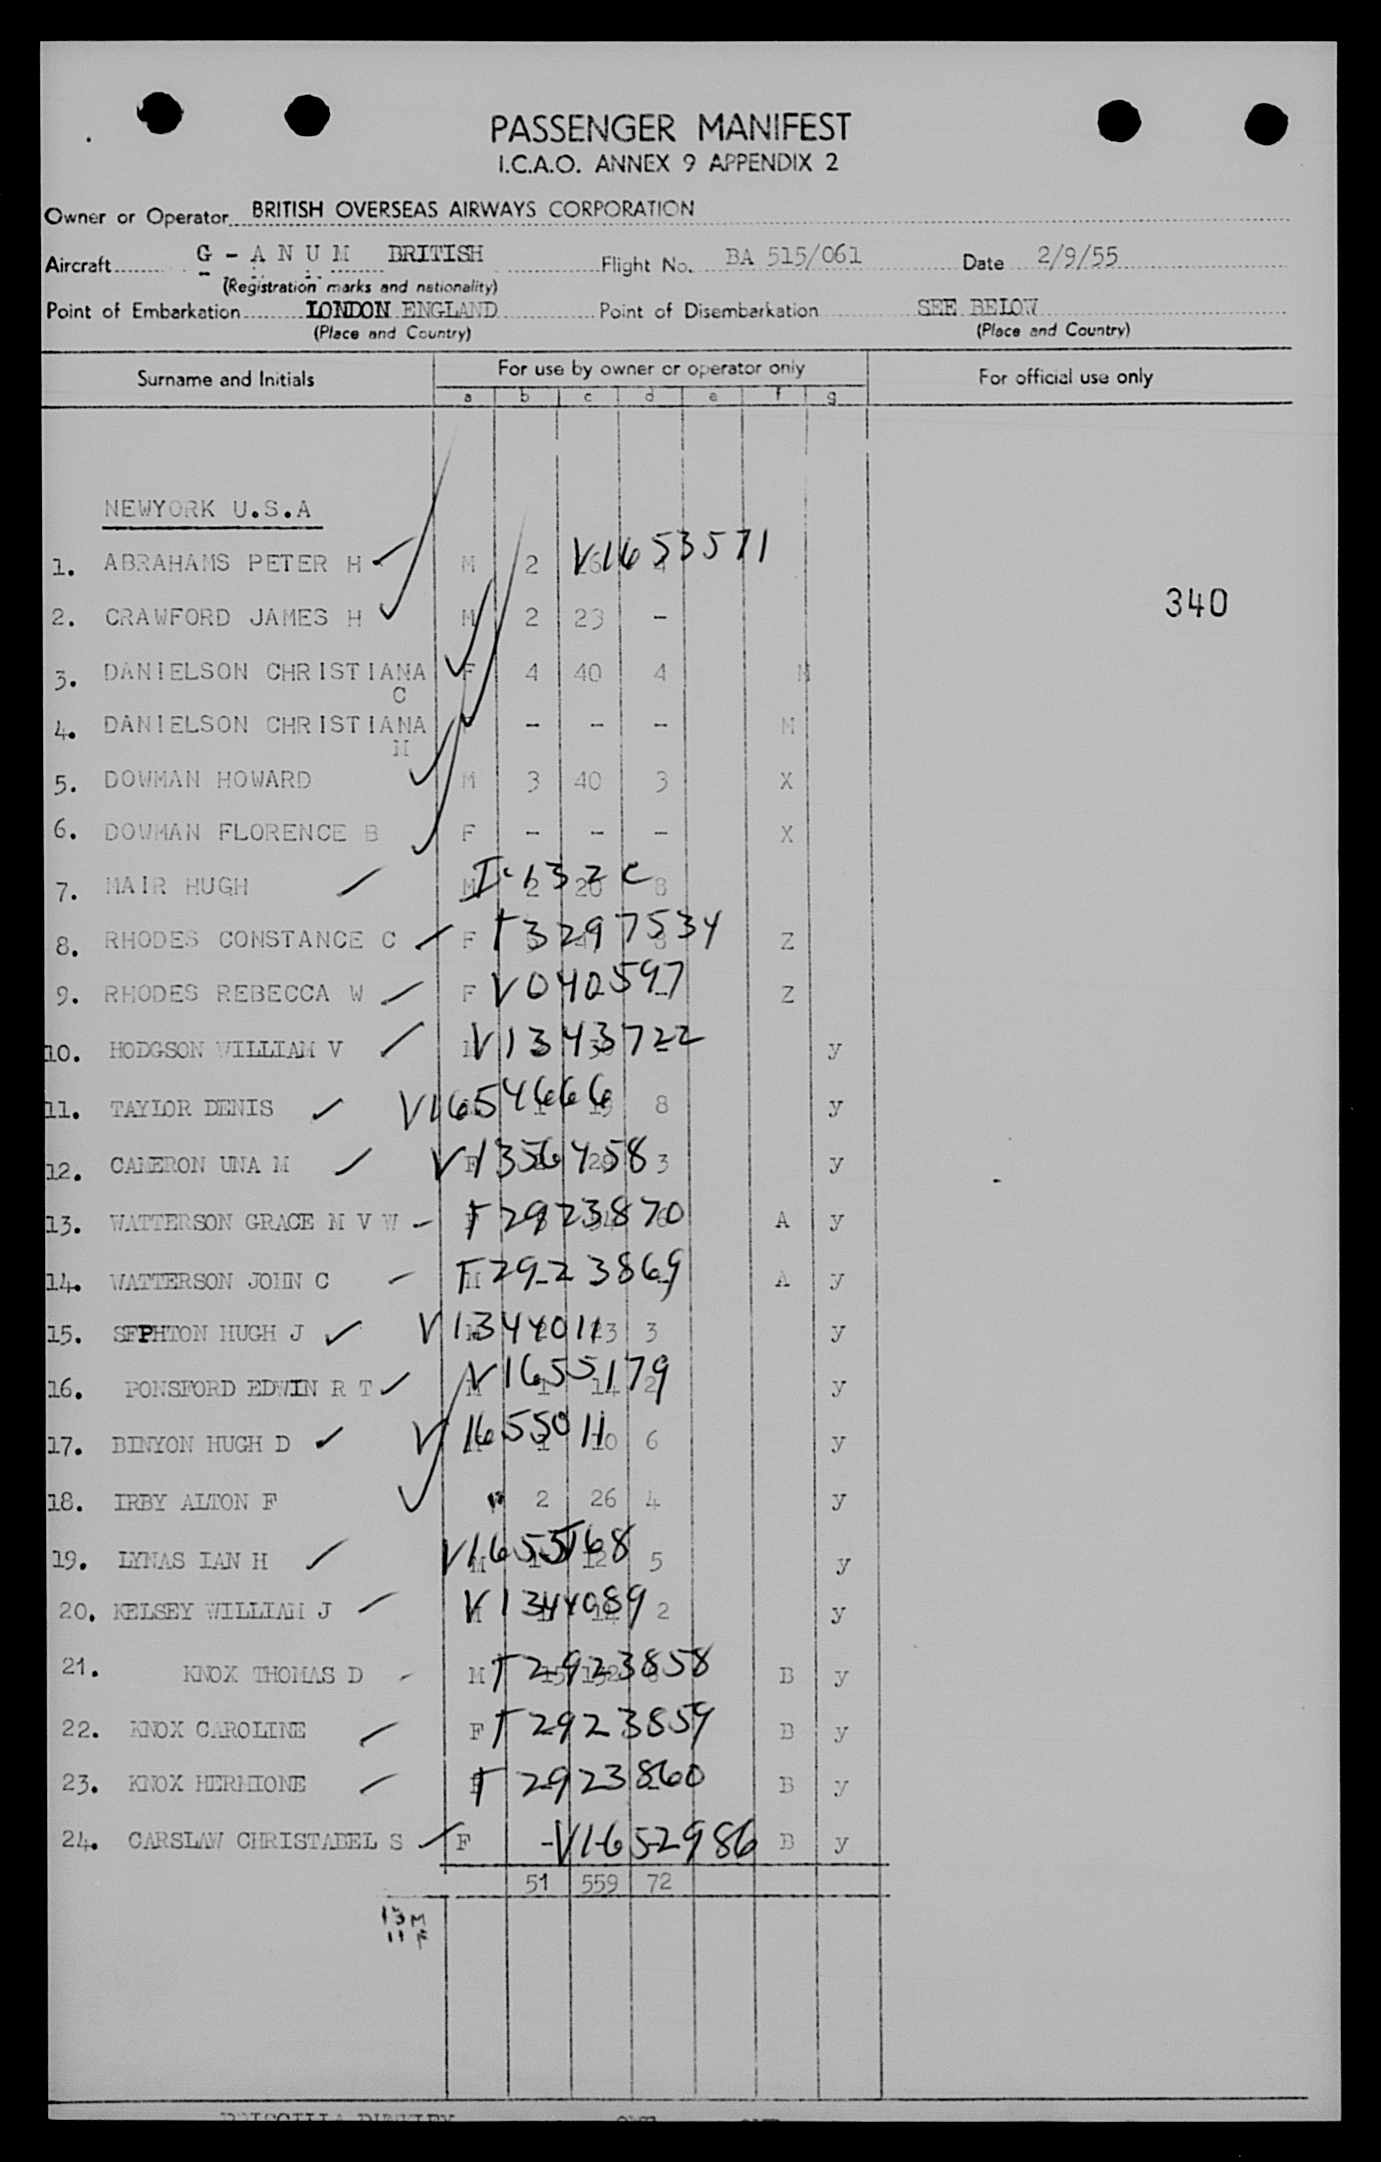 PASSENGER MANIFEST
I.C.A.O. ANNEX 9 APPENDIX 2
Owner or Operator BRITISH OVERSEAS AIRWAYS CORPORATION
Aircraft G - A N U M BRITISH Flight No. BA 515/061 Date 2/9/55
(Registration marks and nationality)
Point of Embarkation LONDON ENGLAND Point of Disembarkation SEE BELOW
(Place and Country) (Place and Country)
Surname and Initials For use by owner or operator only For official use only
a b c d e f g
NEWYORK U.S.A
1. ABRAHAMS PETER H M 2 V1653571
340
2. CRAWFORD JAMES H M 2 23 -
3. DANIELSON CHRISTIANA F 4 40 4 M
C
4. DANIELSON CHRISTIANA - - - M
M
5. DOWMAN HOWARD M 3 40 3 X
6. DOWMAN FLORENCE B F - - - X
7. MAIR HUGH M 2 20 8
8. RHODES CONSTANCE C F T3297534 Z
9. RHODES REBECCA W F V040597 Z
10. HODGSON WILLIAM V V1343722 y
11. TAYLOR DENIS V1654666 8 y
12. CAMERON UNA M F V1356458 3 y
13. WATTERSON GRACE M V W T2923870 A y
14. WATTERSON JOHN C M T2923869 A y
15. SEPHTON HUGH J V1344011 23 3 y
16. PONSFORD EDWIN R T M V1655179 1 14 2 y
17. BINYON HUGH D V1655011 1 10 6 y
18. IRBY ALTON F 2 26 4 y
19. LYNAS IAN H M V1655168 1 12 5 y
20. KELSEY WILLIAM J V1344089 2 y
21. KNOX THOMAS D M T2923858 B y
22. KNOX CAROLINE F T2923859 B y
23. KNOX HERMIONE T2923860 B y
24. CARSLAW CHRISTABEL S F - V1652986 B y
51 559 72
13 M
11 F